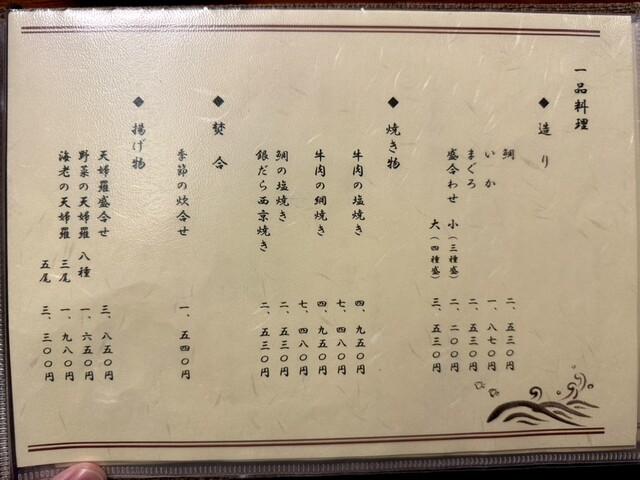 一品料理
◆ 造り
鯛 二、五三〇円
いか 一、八七〇円
まぐろ 二、五三〇円
盛合わせ 小(三種盛) 二、二〇〇円
大(四種盛) 三、五三〇円
◆ 焼き物
牛肉の塩焼き 四、九五〇円
七、四八〇円
牛肉の網焼き 四、九五〇円
七、四八〇円
鯛の塩焼き 二、五三〇円
銀だら西京焼き 二、五三〇円
◆ 焚合
季節の炊合せ 一、五四〇円
◆ 揚げ物
天婦羅盛合せ 三、八五〇円
野菜の天婦羅 八種 一、六五〇円
海老の天婦羅 三尾 一、九八〇円
五尾 三、三〇〇円